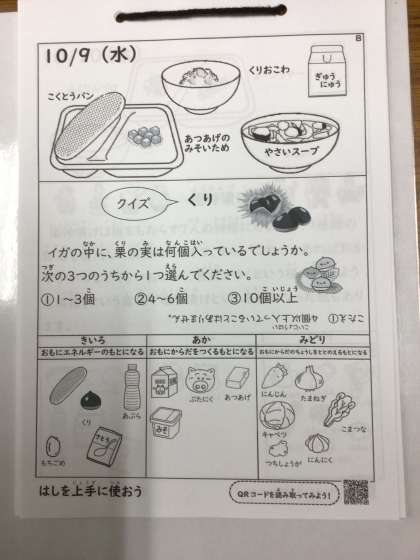 B
10/9（水）
くりおこわ
ぎゅう
にゅう
こくとうパン
あつあげの
みそいため
やさいスープ
クイズ
くり
イガの中に、栗の実は何個入っているでしょうか。
次の3つのうちから1つ選んでください。
①1～3個 ②4～6個 ③10個以上
こたえ：①
4個以上入っていることはありません。
きいろ
おもにエネルギーのもとになる
あか
おもにからだをつくるもとになる
みどり
おもにからだのちょうしをととのえるもとになる
くり
あぶら
もちごめ
さとう
ぶたにく
あつあげ
みそ
にんじん
たまねぎ
キャベツ
こまつな
つちしょうが
にんにく
はしを上手に使おう
QRコードを読み取ってみよう！